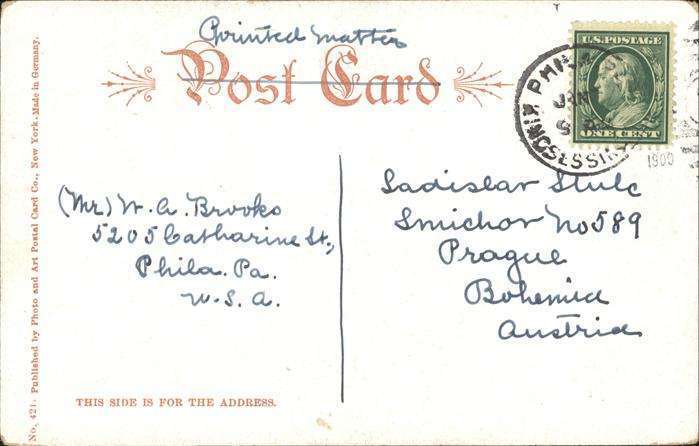 Printed matter
Post Card
U.S. POSTAGE
ONE CENT
PHILA
JAN
KINGSESSING
1900
(Mr) W. A. Brooks
5205 Catharine St.,
Phila. Pa.
U.S.A.
Ladislav Stulc
Smichov No 589
Prague
Bohemia
Austria
THIS SIDE IS FOR THE ADDRESS.
No. 421. Published by Photo and Art Postal Card Co., New York. Made in Germany.